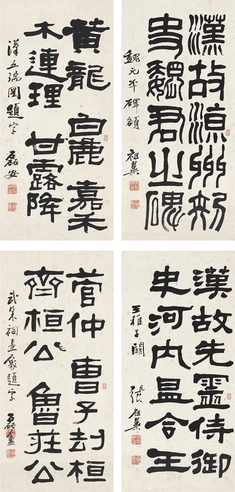 漢故涼州刺
史魏君之碑
魏元丕碑額 祖翼
黃龍 白鹿 嘉禾
木連理 甘露降
漢五瑞圖題字 磊安
漢故先靈侍御
史河內昷令王
王稚子闕 張祖翼
管仲 曹子劫桓
齊桓公 魯莊公
武梁祠畫象題字